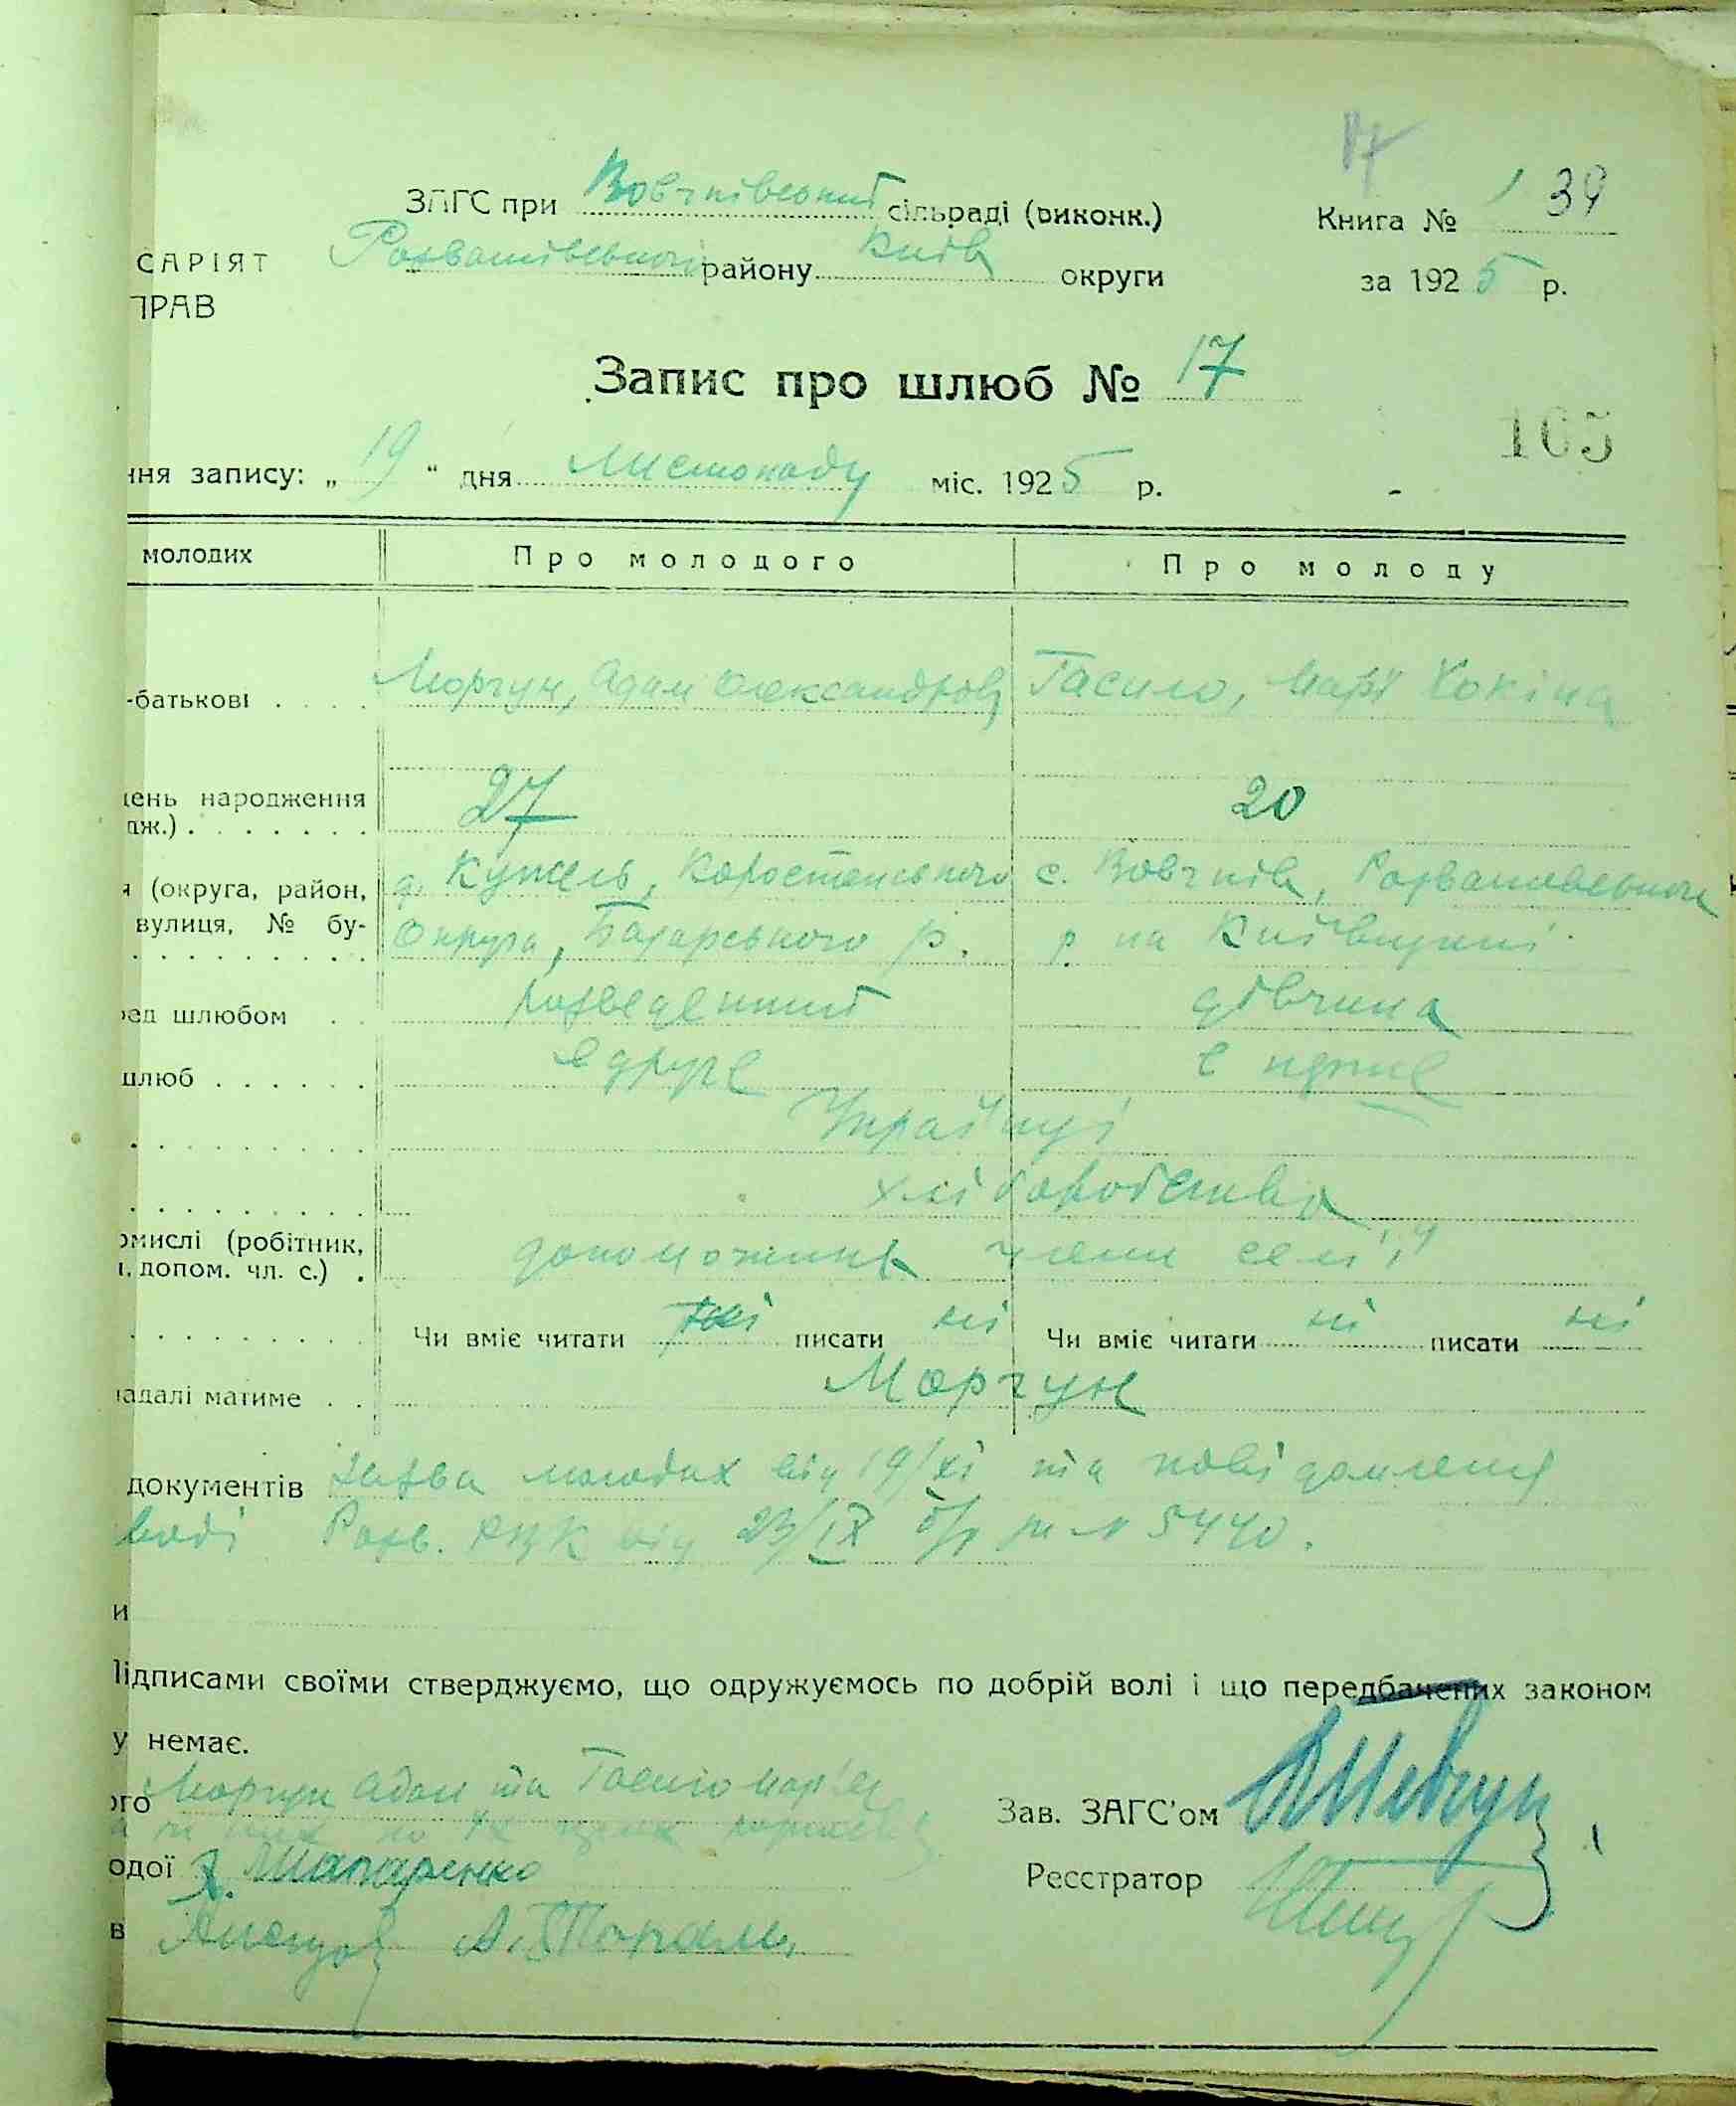 17
ЗАГС при Вовчківський сільраді (виконк.) Книга № 1 39
САРІЯТ Розважівського району Київ округи за 1925 р.
ПРАВ
Запис про шлюб № 17
105
ння запису: „19“ дня Листопаду міс. 1925 р.
молодих Про молодого Про молоду
-батькові Моргун, Адам Олександров Гасило, Марія
день народження 27 20
(округа, район, с. Вовчків, Розважівського
вулиця, № бу- округа, Базарського р. р. на Київщині
ред шлюбом розведений дівчина
шлюб в друге в перше
Українці
хліборобства
омислі (робітник,
допом. чл. с.) члени семї
Чи вміє читати ні писати ні Чи вміє читати ні писати ні
надалі матиме Моргун
документів заява молодих від 19/XI та повідомлення
Розв. РВК від 23/IX б/р за № 5440.
и
Підписами своїми стверджуємо, що одружуємось по добрій волі і що передбачених законом
у немає.
ого Моргун Адам та Гасило Мар'я Зав. ЗАГС'ом
одої Реєстратор
в